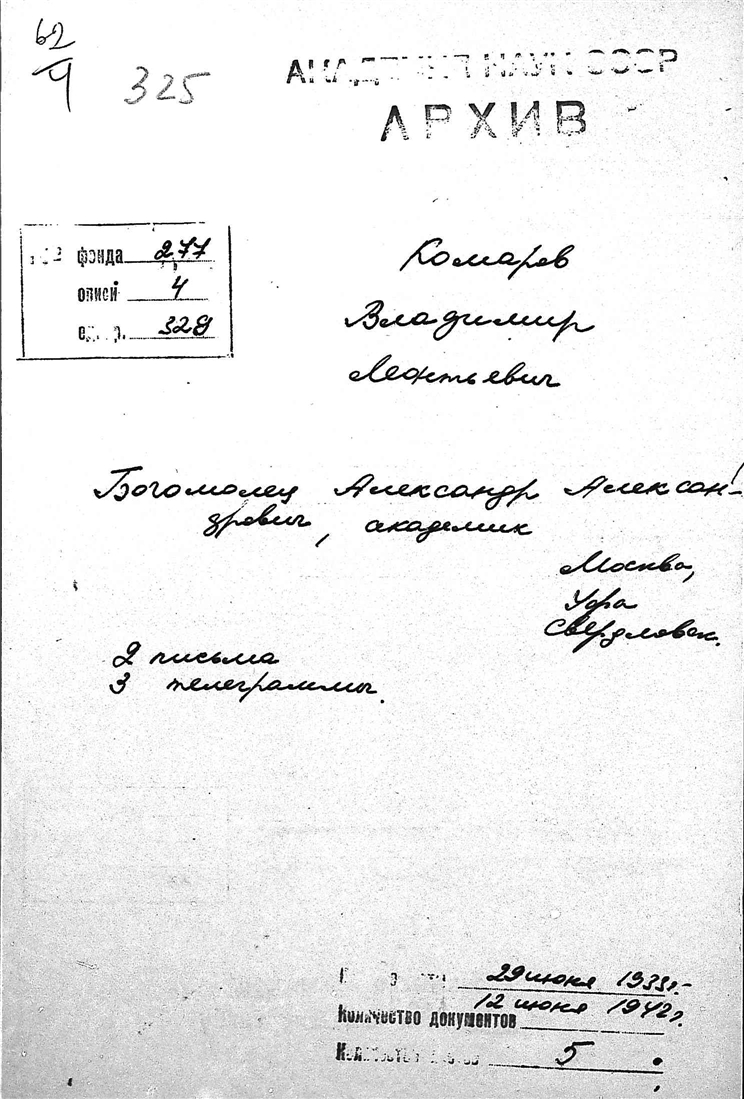 62
4
325
АКАДЕМИЯ НАУК СССР
АРХИВ
фонда 277
описи 4
328
Комаров
Владимир
Леонтьевич
Богомолец Александр Алексан-
дрович, академик
Москва,
Уфа
Свердловск.
2 письма
3 телеграммы.
29 июня 1935г.-
12 июня 1942г.
Количество документов
5